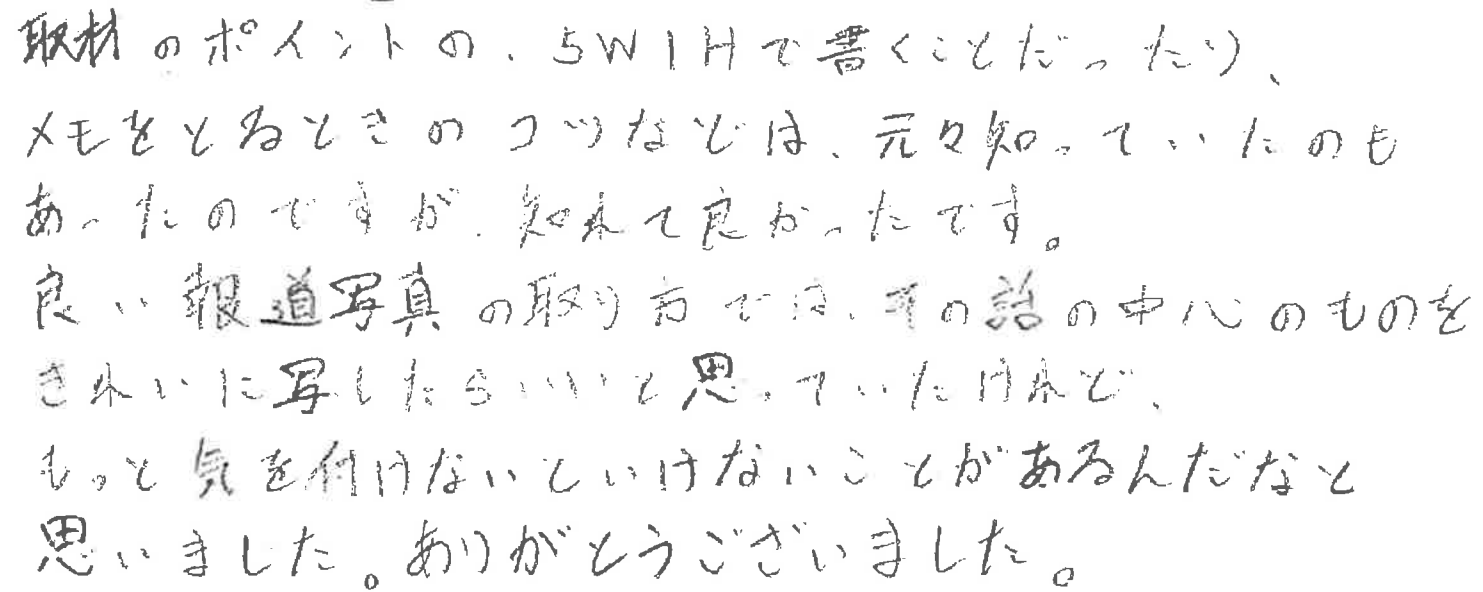 取材のポイントの、5W1Hで書くことだったり、
メモをとるときのコツなどは、元々知っていたのも
あったのですが、知れて良かったです。
良い報道写真の取り方では、その話の中心のものを
きれいに写したらいいと思っていたけれど、
もっと気を付けないといけないことがあるんだなと
思いました。ありがとうございました。